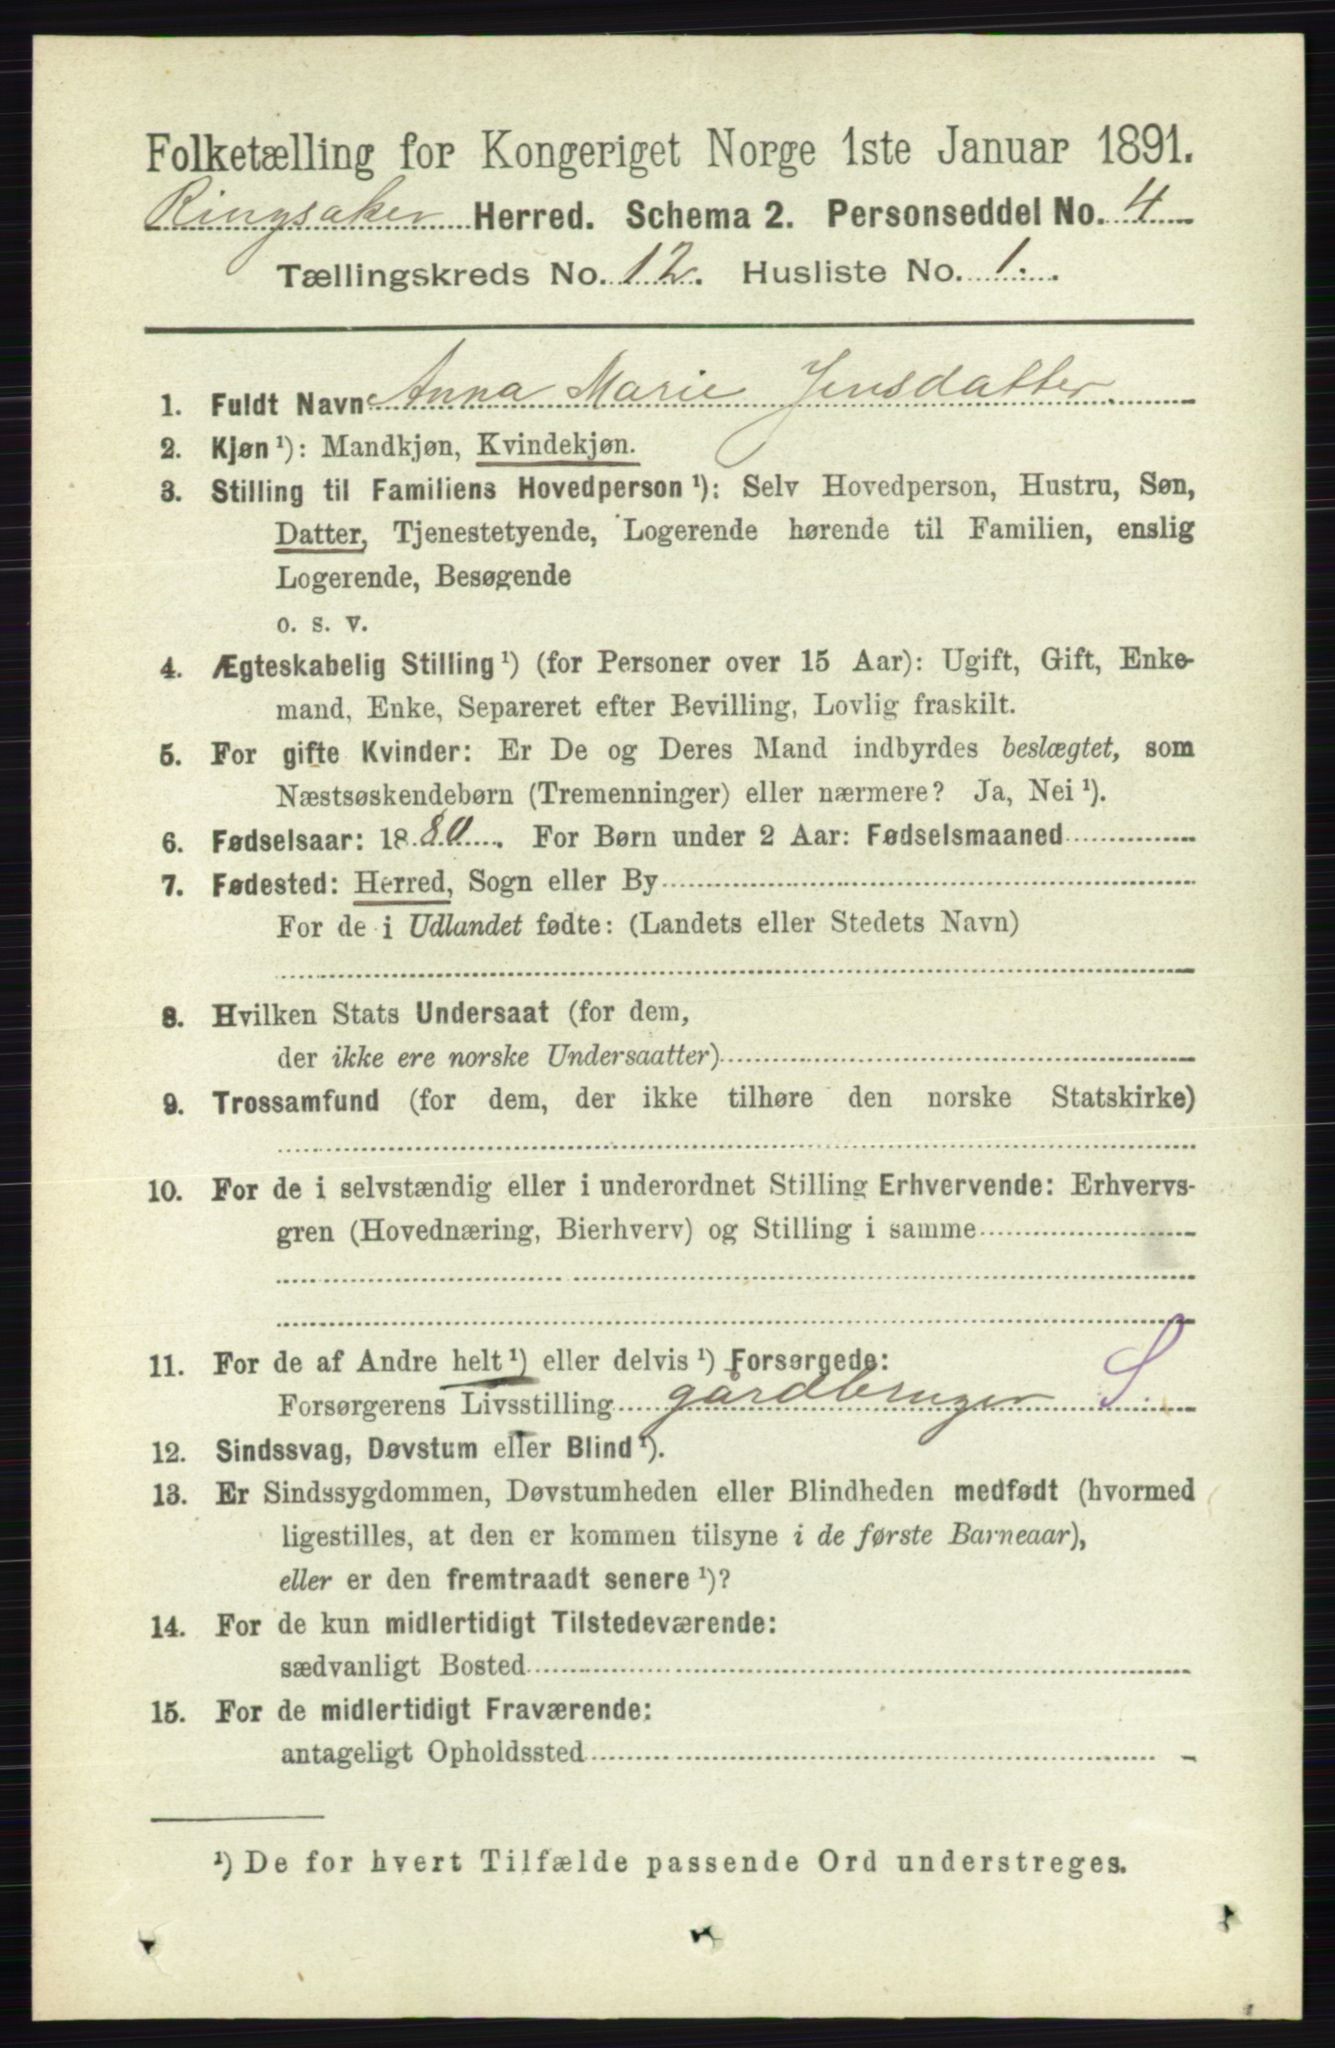 Folketælling for Kongeriget Norge 1ste Januar 1891.
Ringsaker Herred. Schema 2. Personseddel No. 4
Tællingskreds No. 12. Husliste No. 1.
1. Fuldt Navn Anna Marie Jensdatter.
2. Kjøn ¹): Mandkjøn, Kvindekjøn.
3. Stilling til Familiens Hovedperson ¹): Selv Hovedperson, Hustru, Søn,
Datter, Tjenestetyende, Logerende hørende til Familien, enslig
Logerende, Besøgende
o. s. v.
4. Ægteskabelig Stilling ¹) (for Personer over 15 Aar): Ugift, Gift, Enke-
mand, Enke, Separeret efter Bevilling, Lovlig fraskilt.
5. For gifte Kvinder: Er De og Deres Mand indbyrdes beslægtet, som
Næstsøskendebørn (Tremenninger) eller nærmere? Ja, Nei ¹).
6. Fødselsaar: 1880. For Børn under 2 Aar: Fødselsmaaned
7. Fødested: Herred, Sogn eller By
For de i Udlandet fødte: (Landets eller Stedets Navn)
8. Hvilken Stats Undersaat (for dem,
der ikke ere norske Undersaatter)
9. Trossamfund (for dem, der ikke tilhøre den norske Statskirke)
10. For de i selvstændig eller i underordnet Stilling Erhvervende: Erhvervs-
gren (Hovednæring, Bierhverv) og Stilling i samme
11. For de af Andre helt ¹) eller delvis ¹) Forsørgede:
Forsørgerens Livsstilling gårdbruger S.
12. Sindssvag, Døvstum eller Blind ¹).
13. Er Sindssygdommen, Døvstumheden eller Blindheden medfødt (hvormed
ligestilles, at den er kommen tilsyne i de første Barneaar),
eller er den fremtraadt senere ¹)?
14. For de kun midlertidigt Tilstedeværende:
sædvanligt Bosted
15. For de midlertidigt Fraværende:
antageligt Opholdssted
¹) De for hvert Tilfælde passende Ord understreges.